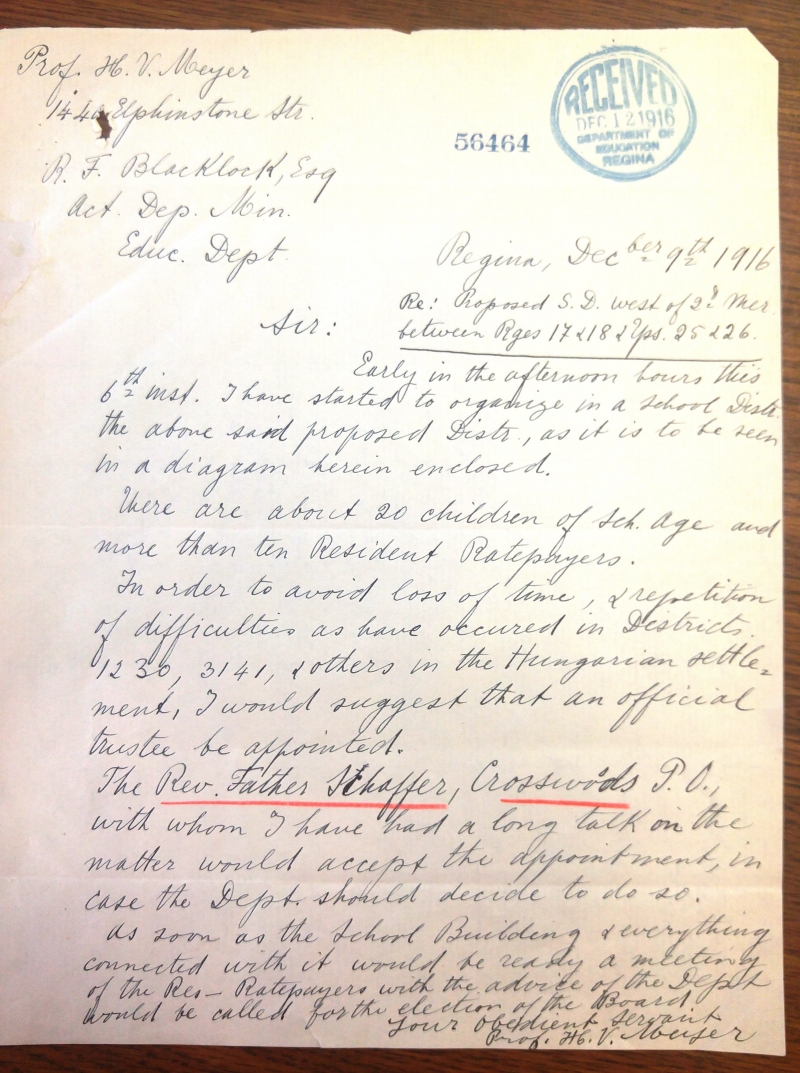 Prof. H. V. Meyer
Elphinstone Str.
56464
RECEIVED
DEC 12 1916
DEPARTMENT OF
EDUCATION
REGINA
R. F. Blacklock, Esq
Act. Dep. Min.
Educ. Dept.
Regina, Decber 9th 1916
Sir:
Re: Proposed S. D. west of 2d Mer.
between Rges 17 & 18 & Tps. 25 & 26.
Early in the afternoon hours this
6th inst. I have started to organize in a School Distr.
the above said proposed Distr., as it is to be seen
in a diagram herein enclosed.
There are about 20 children of Sch. Age and
more than ten Resident Ratepayers.
In order to avoid loss of time, & repetition
of difficulties as have occured in Districts
1230, 3141, & others in the Hungarian settle=
ment, I would suggest that an official
trustee be appointed.
The Rev. Father Schaffer, Crosswoods P. O.,
with whom I have had a long talk on the
matter would accept the appointment, in
case the Dept. should decide to do so.
As soon as the School Building & everything
connected with it would be ready a meeting
of the Res- Ratepayers with the advice of the Dept
would be called for the election of the Board
Your obedient servant
Prof. H. V. Meyer